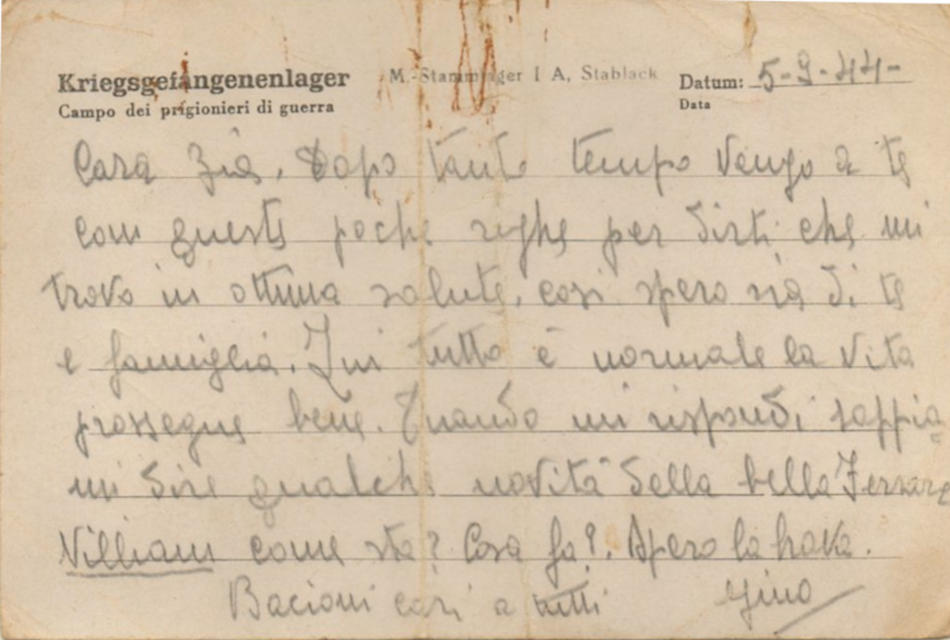 Kriegsgefangenenlager M.-Stammlager I A, Stablack Datum: 5-9-44-
Campo dei prigionieri di guerra Data
Cara Zia. Dopo tanto tempo vengo a te
con queste poche righe per dirti che mi
trovo in ottima salute, così spero sia di te
e famiglia. Qui tutto è normale la vita
prosegue bene. Quando mi rispondi sappia
mi dire qualche novità della bella Ferrara
Villiam come sta? Cosa fa?. Spero la
Bacioni cari a tutti Gino